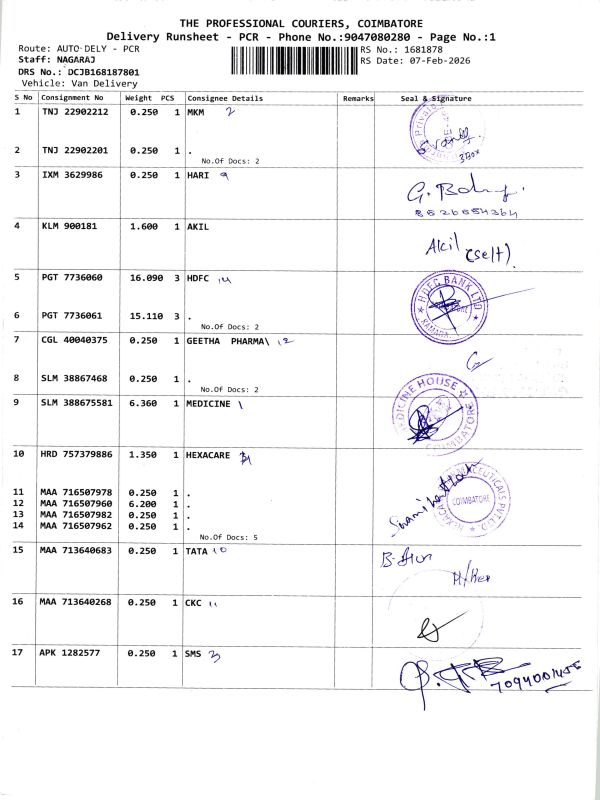 THE PROFESSIONAL COURIERS, COIMBATORE
Delivery Runsheet - PCR - Phone No.:9047080280 - Page No.:1
Route: AUTO-DELY - PCR
RS No.: 1681878
Staff: NAGARAJ
RS Date: 07-Feb-2026
DRS No.: DCJB168187801
Vehicle: Van Delivery
S No Consignment No Weight PCS Consignee Details Remarks Seal & Signature
1 TNJ 22902212 0.250 1 MKM 2
2 TNJ 22902201 0.250 1 .
No.Of Docs: 2
3 IXM 3629986 0.250 1 HARI 9
4 KLM 900181 1.600 1 AKIL
Akil (self).
5 PGT 7736060 16.090 3 HDFC 14
HDFC BANK LTD
6 PGT 7736061 15.110 3 .
No.Of Docs: 2
7 CGL 40040375 0.250 1 GEETHA PHARMA\ 12
8 SLM 38867468 0.250 1 .
No.Of Docs: 2
9 SLM 388675581 6.360 1 MEDICINE 1
MEDICINE HOUSE
COIMBATORE
10 HRD 757379886 1.350 1 HEXACARE
11 MAA 716507978 0.250 1 .
12 MAA 716507960 6.200 1 .
COIMBATORE
13 MAA 716507982 0.250 1 .
14 MAA 716507962 0.250 1 .
No.Of Docs: 5
15 MAA 713640683 0.250 1 TATA 10
16 MAA 713640268 0.250 1 CKC 11
17 APK 1282577 0.250 1 SMS 3
7094001455